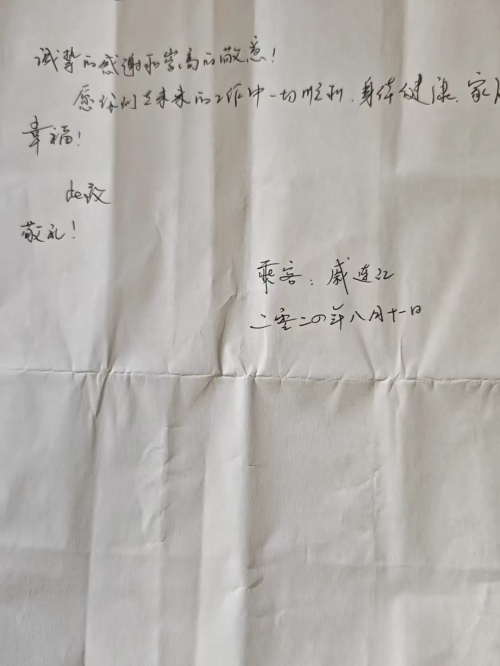 诚挚的感谢和崇高的敬意!
愿你们在未来的工作中一切顺利、身体健康、家
幸福!
此致
敬礼!
乘客:戚连江
二零二四年八月十一日